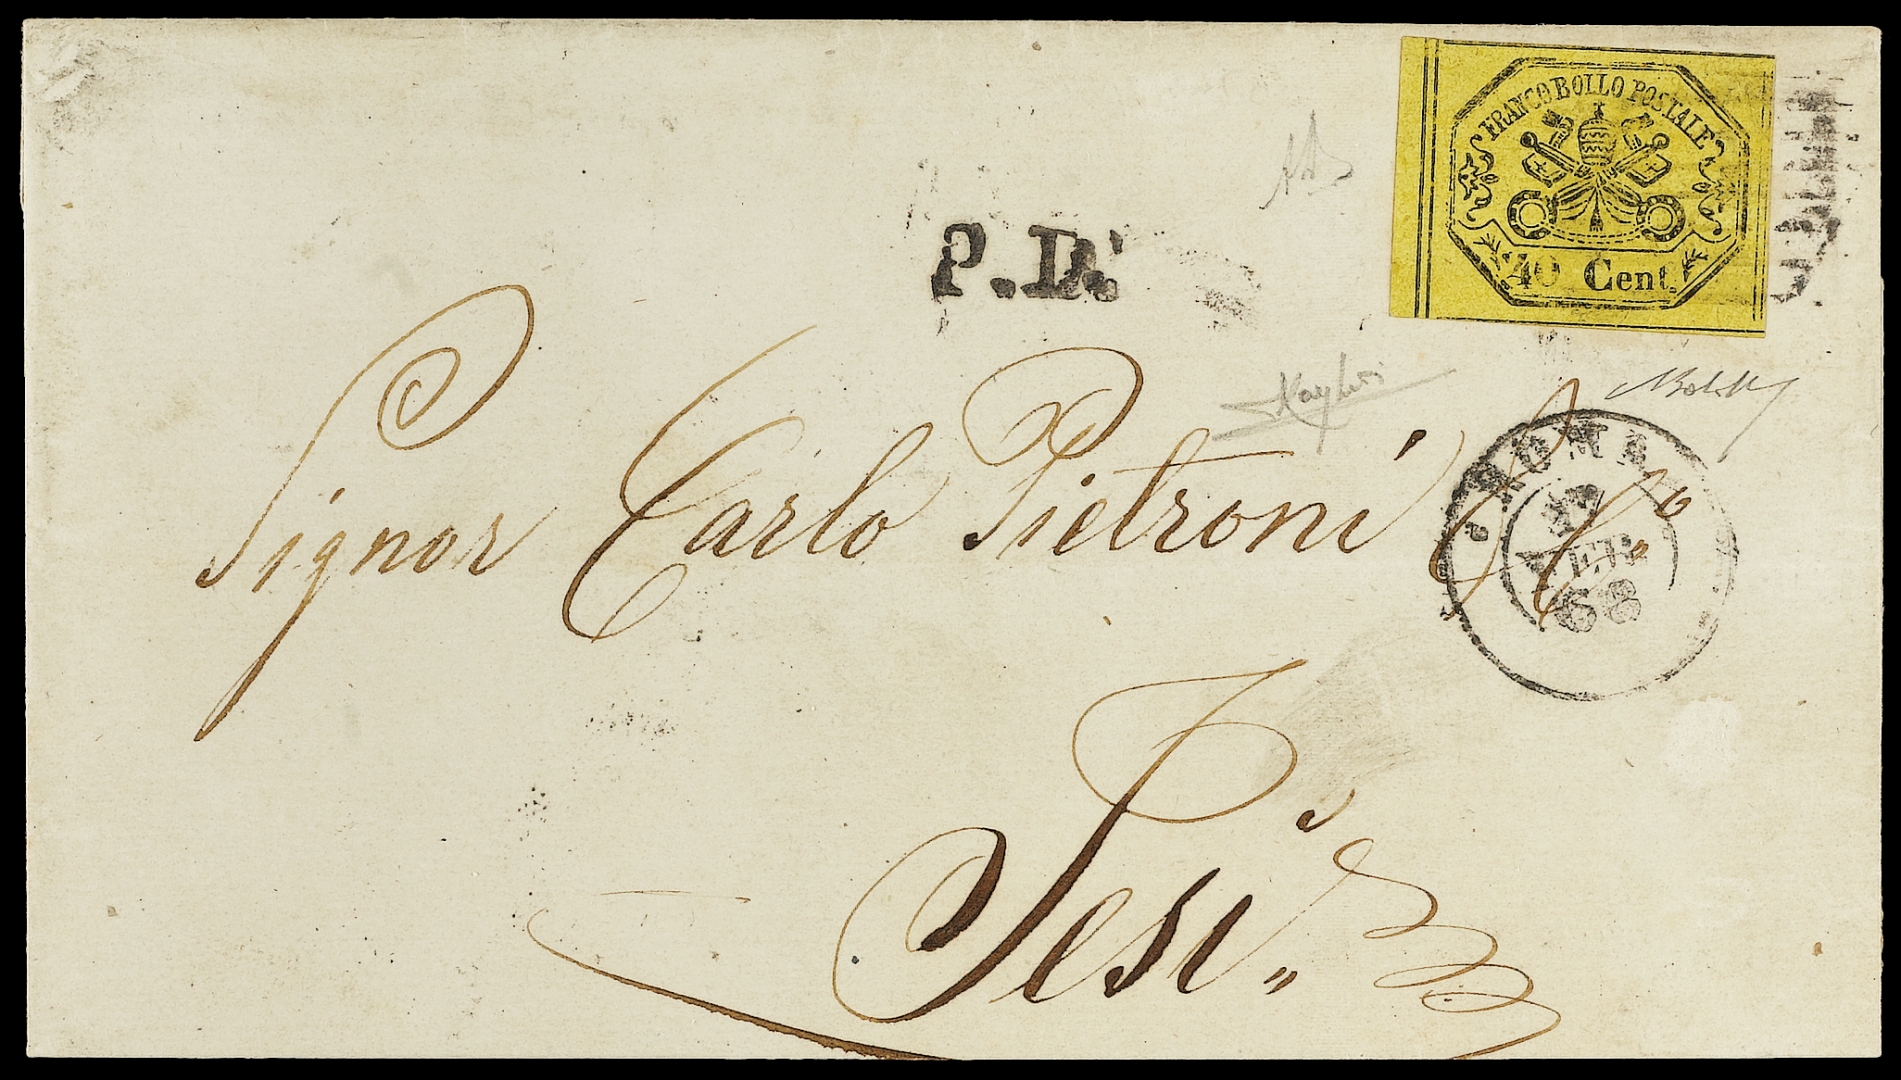 FRANCO BOLLO POSTALE
40 Cent.
P.D.
Signor Carlo Pietroni &C.º
ROMA
FEB
68
Jesi.